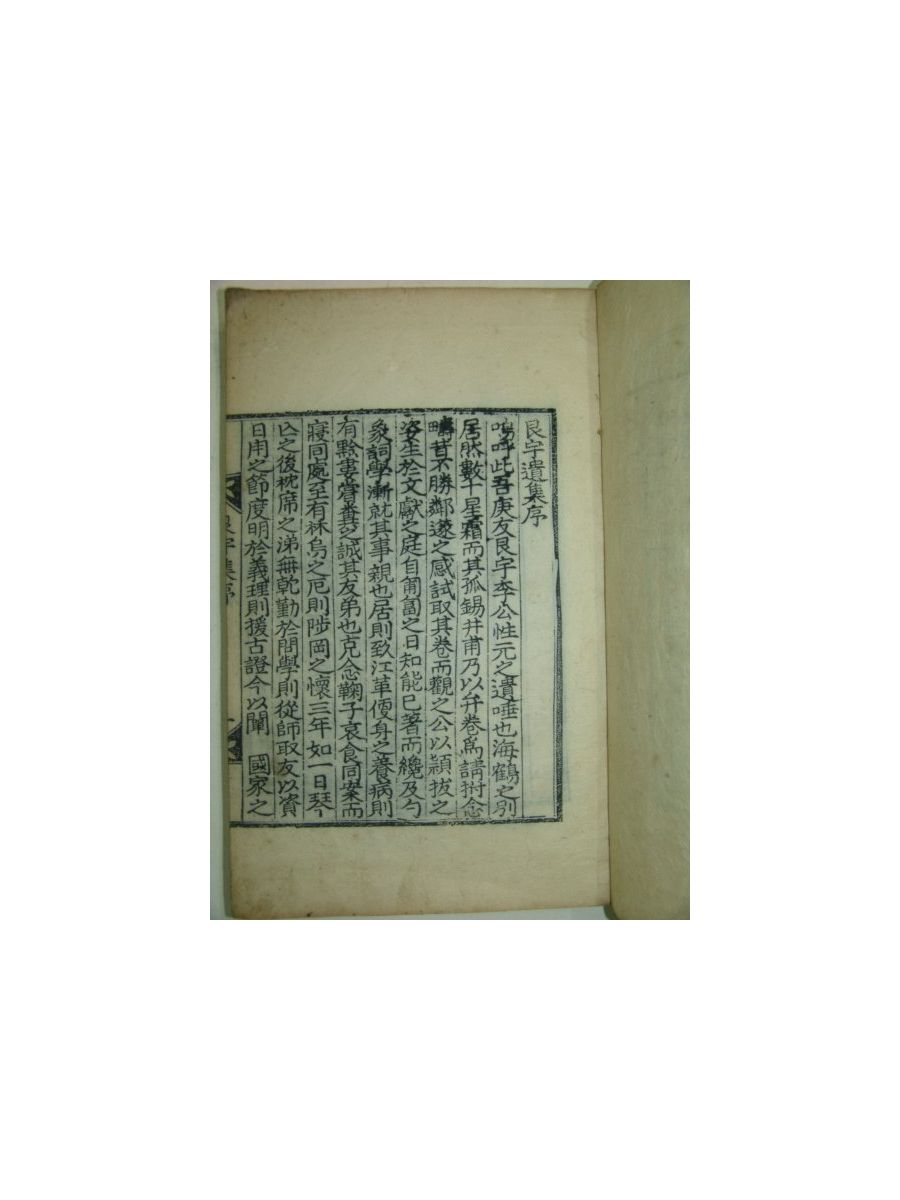 艮宇遺集序
嗚呼此吾庚友艮宇李公性元之遺唾也海鶴之別
居然數十星霜而其孤錫井甫乃以弁卷爲請拊念
疇昔不勝鄰邃之感試取其卷而觀之公以穎拔之
姿生於文獻之庭自匍匐之日知能已著而纔及勺
象詞學漸就其事親也居則致江革便身之養病則
有黔婁嘗糞之誠其友弟也克念鞠子哀食同案而
寢同處至有袜烏之厄則陟岡之懷三年如一日琴
亾之後枕席之涕無乾勤於問學則從師取友以資
日用之節度明於義理則援古證今以闡 國家之
艮宇集序
一